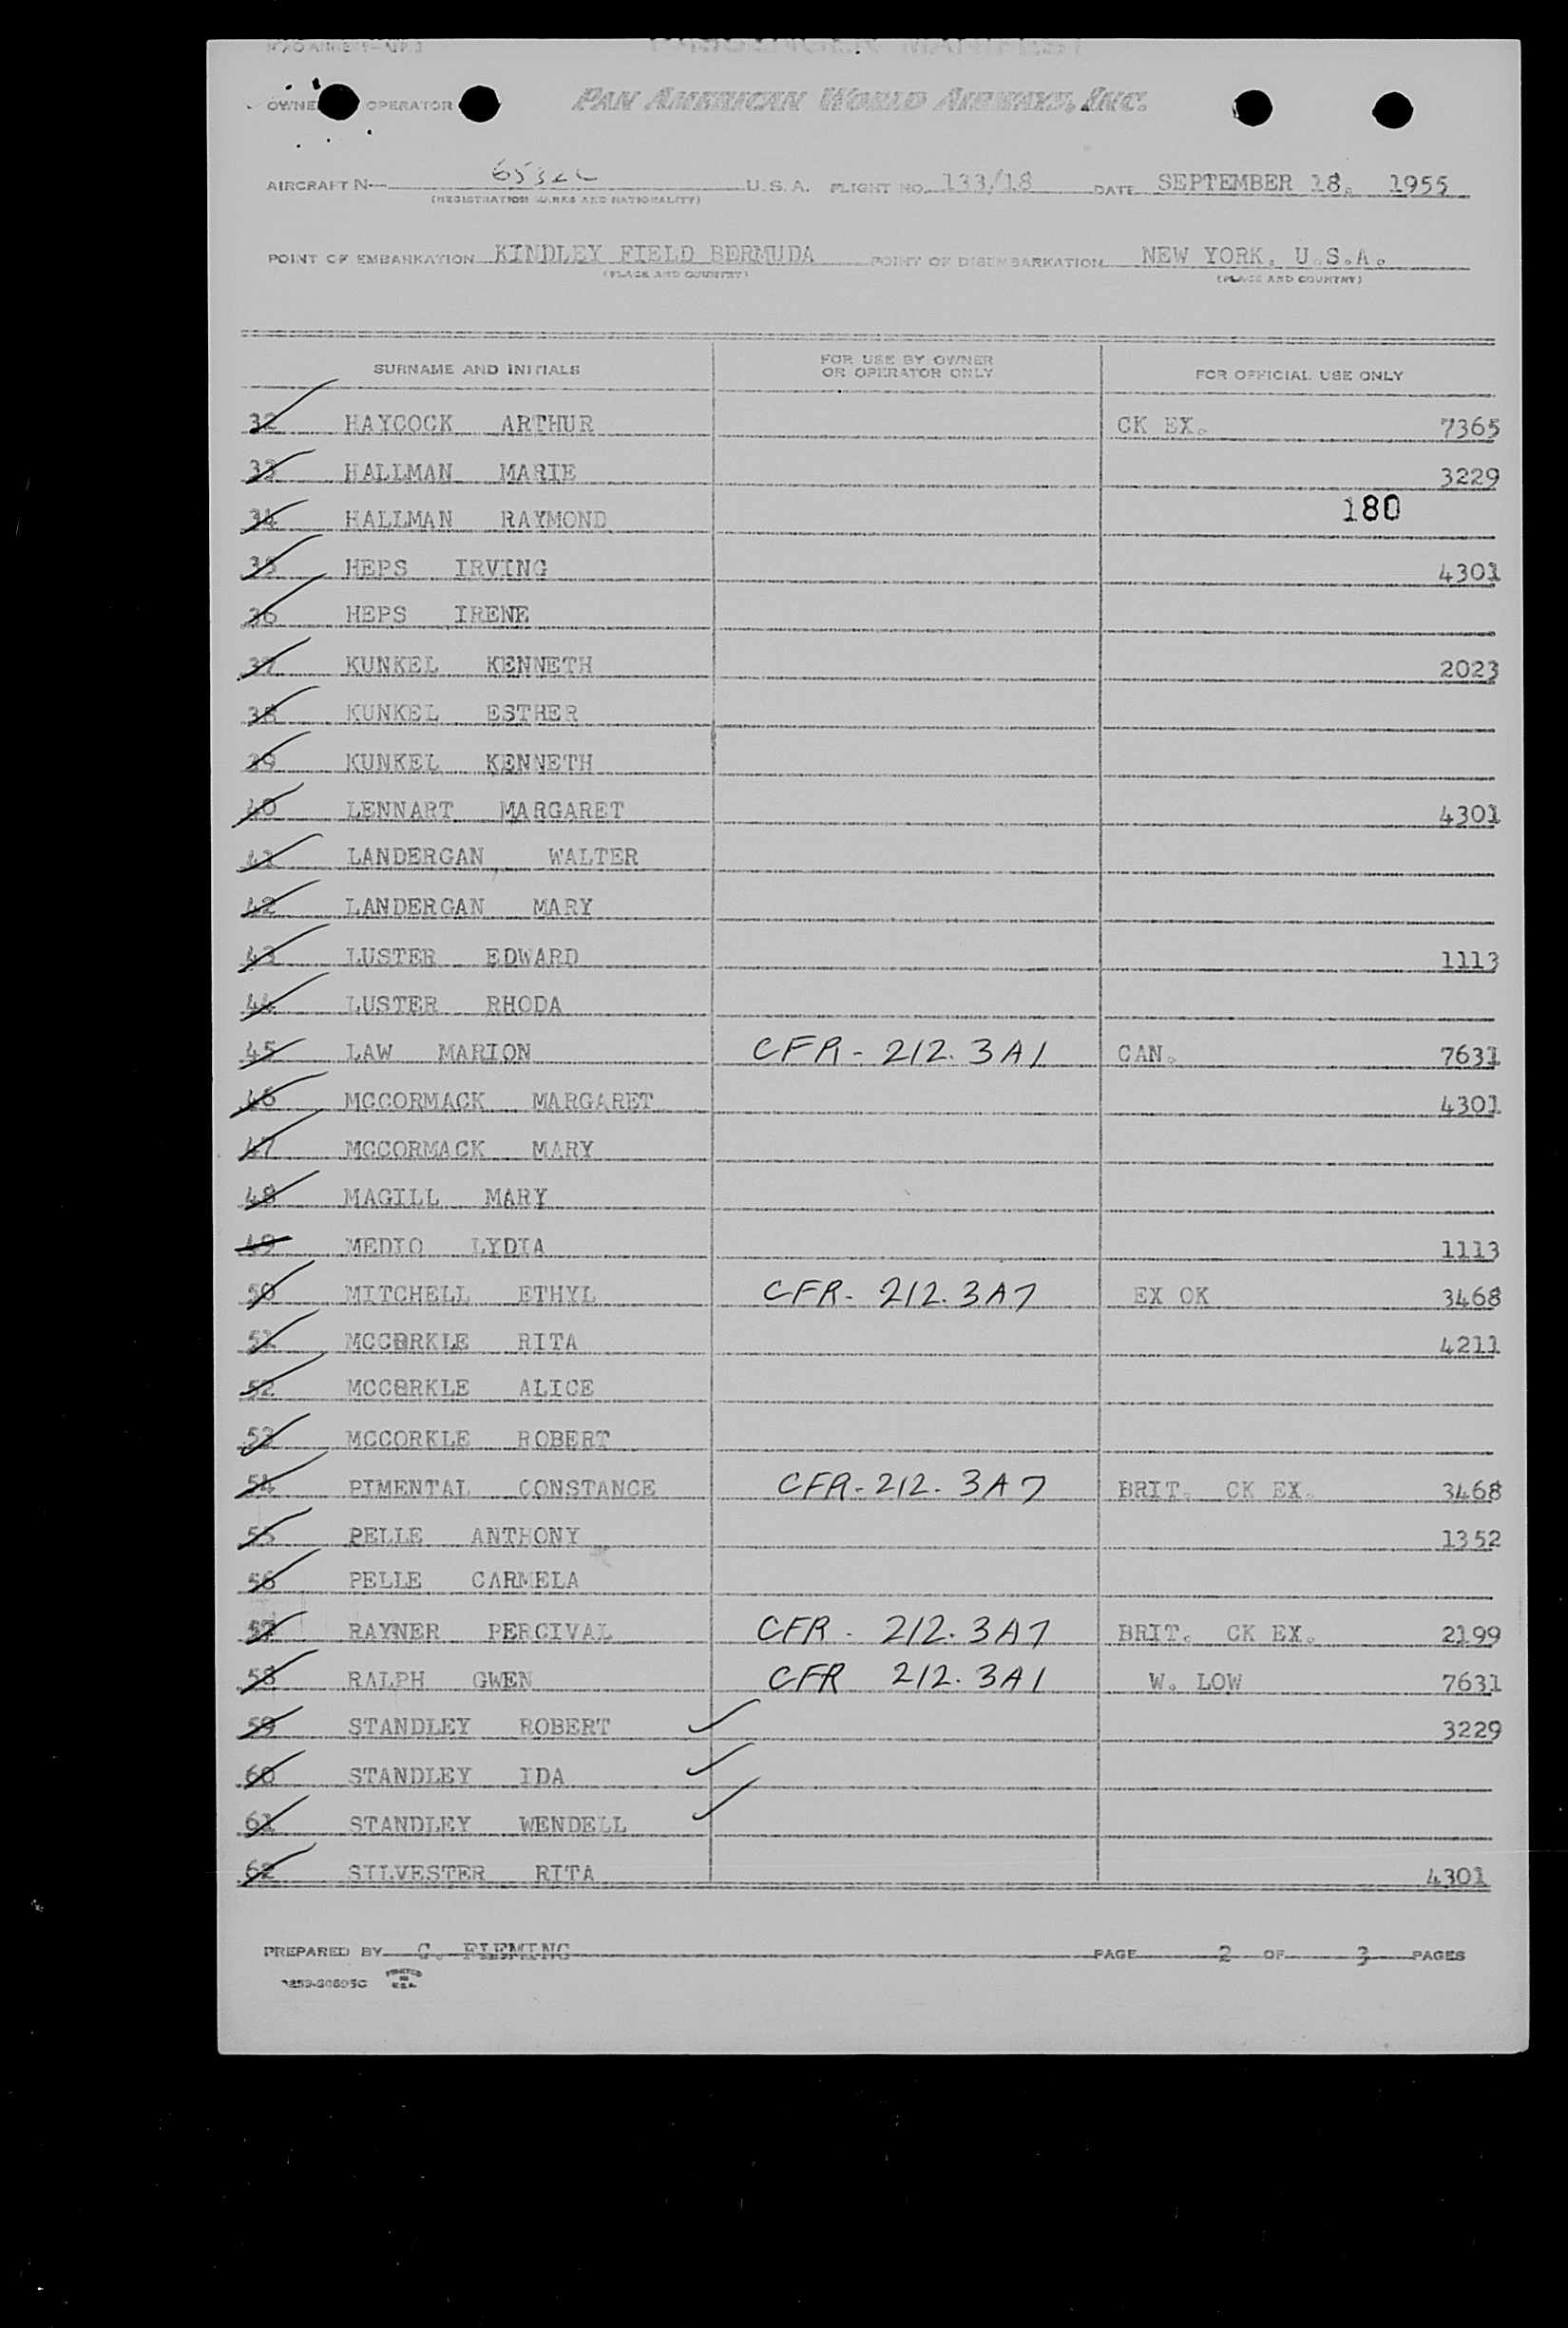 PASSENGER MANIFEST
OWNER OPERATOR PAN AMERICAN WORLD AIRWAYS, INC.
AIRCRAFT N 6532C U.S.A. FLIGHT NO. 133/18 DATE SEPTEMBER 18. 1955
(REGISTRATION MARKS AND NATIONALITY)
POINT OF EMBARKATION KINDLEY FIELD BERMUDA POINT OF DISEMBARKATION NEW YORK. U.S.A.
(PLACE AND COUNTRY) (PLACE AND COUNTRY)
SURNAME AND INITIALS FOR USE BY OWNER OR OPERATOR ONLY FOR OFFICIAL USE ONLY
32 HAYCOCK ARTHUR CK EX. 7365
33 HALLMAN MARIE 3229
34 HALLMAN RAYMOND 180
35 HEPS IRVING 4301
36 HEPS IRENE
37 KUNKEL KENNETH 2023
38 KUNKEL ESTHER
39 KUNKEL KENNETH
40 LENNART MARGARET 4301
41 LANDERGAN WALTER
42 LANDERGAN MARY
43 LUSTER EDWARD 1113
44 LUSTER RHODA
45 LAW MARION CFR-212.3A1 CAN. 7631
46 MCCORMACK MARGARET 4301
47 MCCORMACK MARY
48 MAGILL MARY
49 MEDIO LYDIA 1113
50 MITCHELL ETHYL CFR-212.3A7 EX OK 3468
51 MCCORKLE RITA 4211
52 MCCORKLE ALICE
53 MCCORKLE ROBERT
54 PIMENTAL CONSTANCE CFR-212.3A7 BRIT. CK EX. 3468
55 PELLE ANTHONY 1352
56 PELLE CARMELA
57 RAYNER PERCIVAL CFR-212.3A7 BRIT. CK EX. 2199
58 RALPH GWEN CFR 212.3A1 W. LOW 7631
59 STANDLEY ROBERT 3229
60 STANDLEY IDA
61 STANDLEY WENDELL
62 SILVESTER RITA 4301
PREPARED BY C. FLEMING PAGE 2 OF 3 PAGES
PRINTED IN U.S.A.